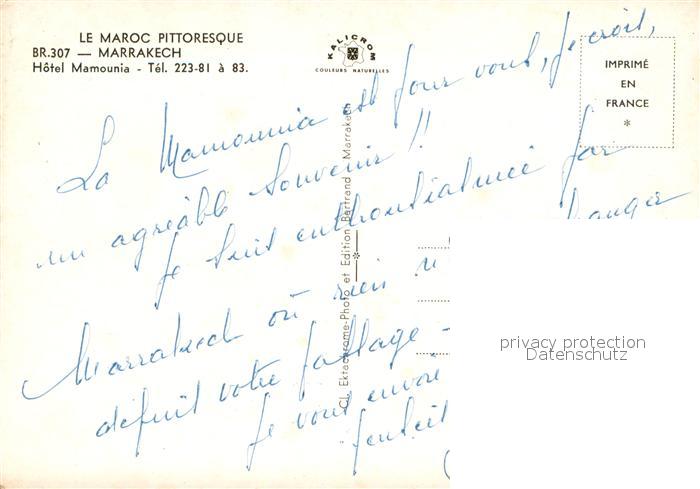 LE MAROC PITTORESQUE
BR.307 — MARRAKECH
Hôtel Mamounia - Tél. 223-81 à 83.
KALICROM
COULEURS NATURELLES
IMPRIMÉ
EN
FRANCE
*
Cl. Ektachrome-Photo et Edition Bertrand Marrakech
La Mamounia est pour vous, je crois,
un agréable souvenir !!
Je suis enthousiasmée par
Marrakech où rien n' changer
depuis votre passage -
Je vous envoie
privacy protection
Datenschutz